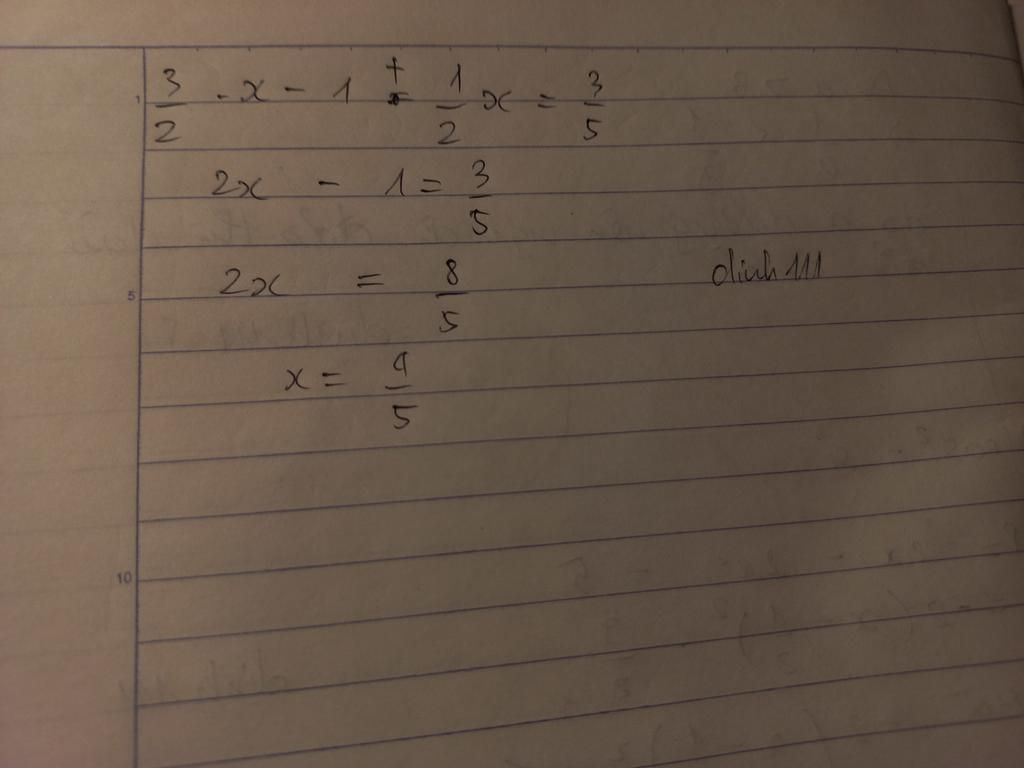 3/2 . x - 1 + 1/2 x = 3/5
2x - 1 = 3/5
2x = 8/5
dinh111
x = 4/5
1
5
10